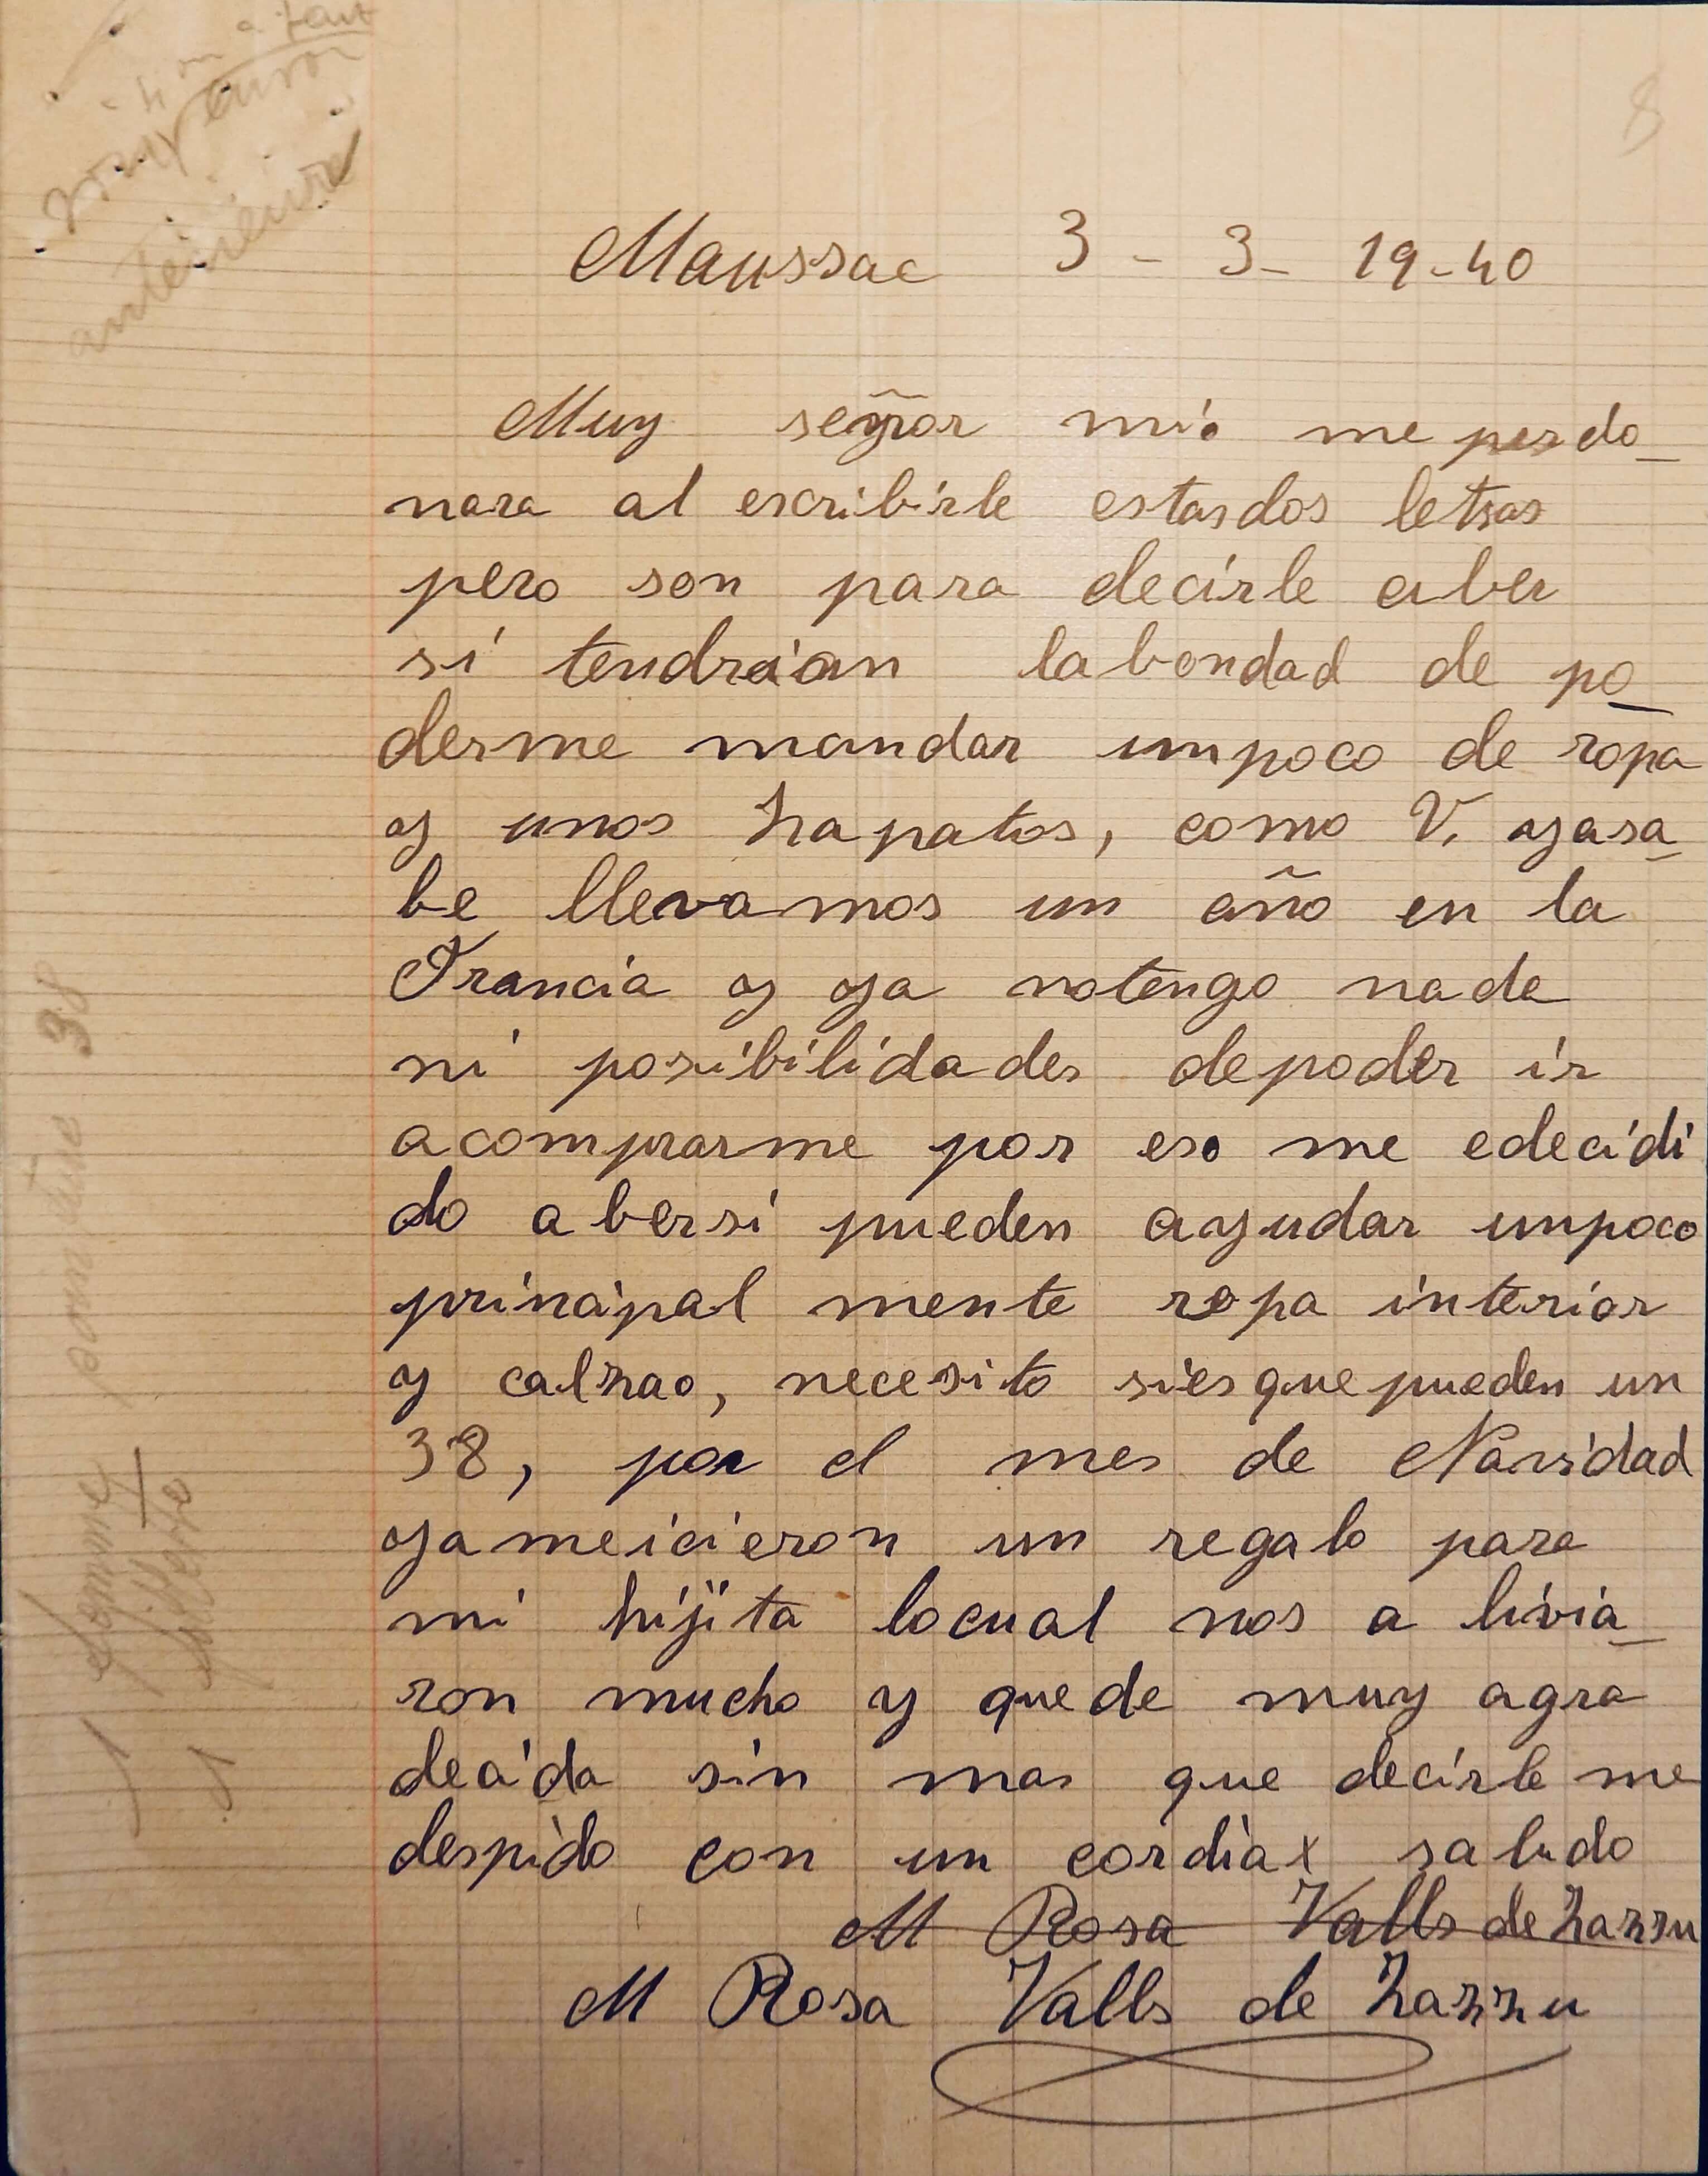 antérieure
8
Maussac 3 - 3 - 19-40
Muy señor mió me perdo_
nara al escribirle estasdos letras
pero son para decirle aber
si tendrian labondad de po_
derme mandar unpoco de ropa
y unos zapatos, como V. yasa_
be llevamos un año en la
Francia y ya notengo nada
ni posibilidades depoder ir
acomprarme por eso me edecidi
do abersi pueden ayudar unpoco
principal mente ropa interior
y calzao, necesito siesquepueden un
38, por el mes de Navidad
yameicieron un regalo para
mi hijita locual nos a livia_
ron mucho y quede muy agra
decida sin mas que decirle me
despido con un cordial saludo
M Rosa Valls de Zazzu
M Rosa Valls de Zazzu
pointure 38
1 homme
1 fillette